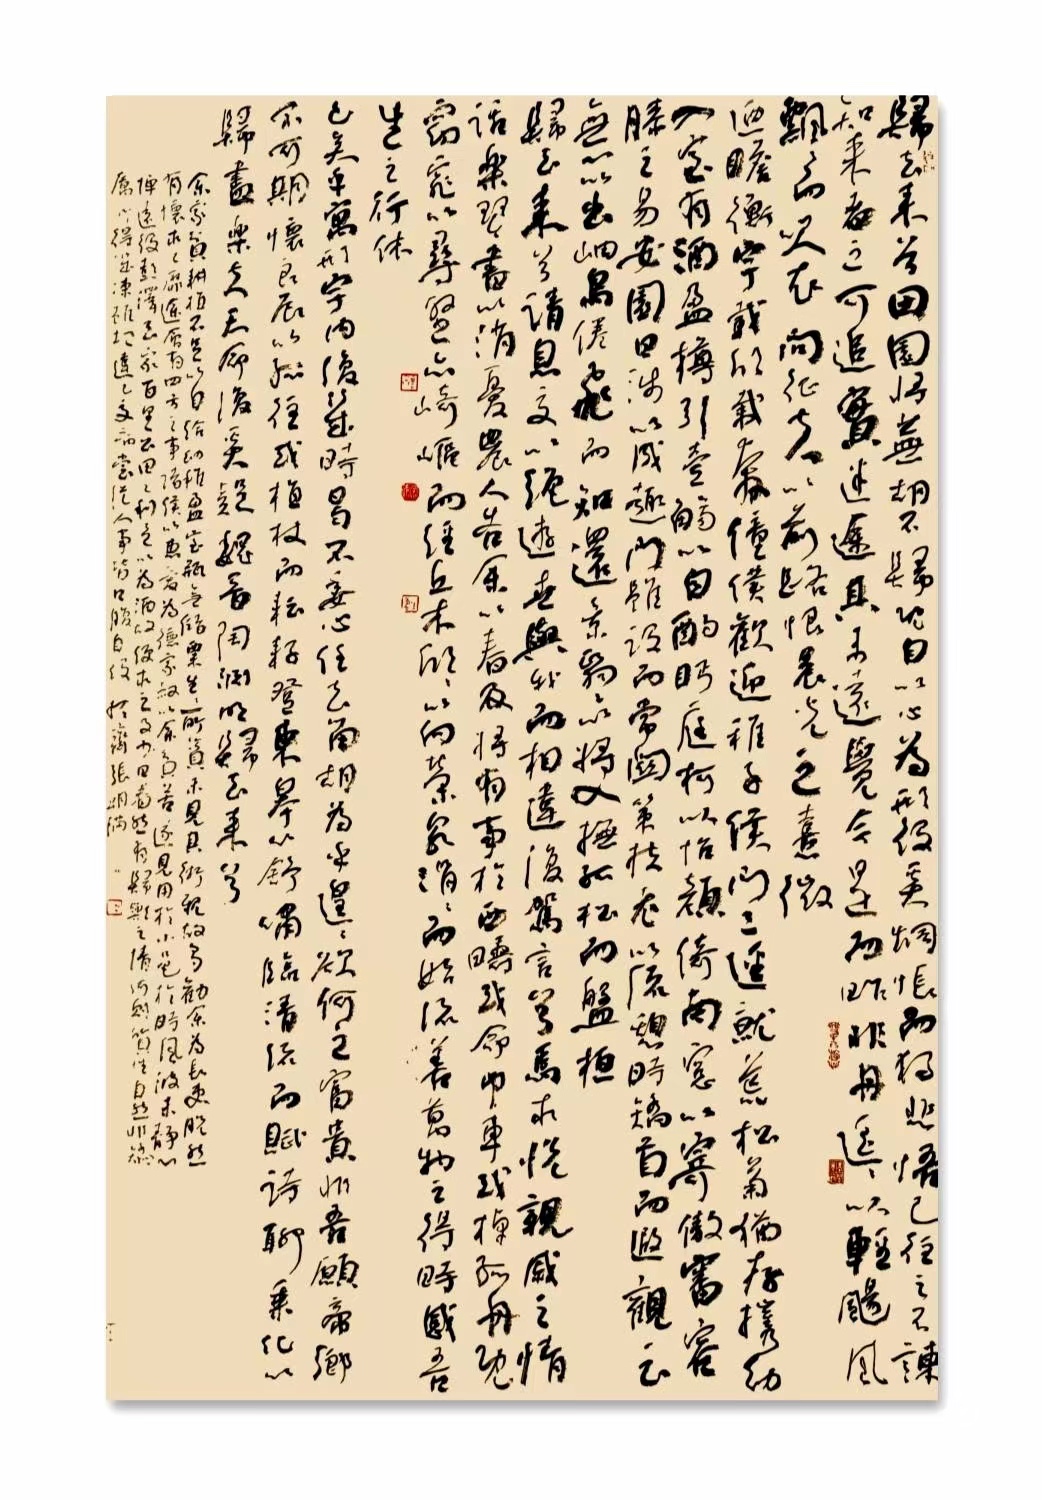 歸去來兮田園將蕪胡不歸既自以心為形役奚惆悵而獨悲悟已往之不諫
知來者之可追實迷途其未遠覺今是而昨非舟遙遙以輕颺風
飄飄而吹衣問征夫以前路恨晨光之熹微
迺瞻衡宇載欣載奔僮僕歡迎稚子候門三逕就荒松菊猶存攜幼
入室有酒盈樽引壺觴以自酌眄庭柯以怡顏倚南窗以寄傲審容
膝之易安園日涉以成趣門雖設而常關策扶老以流憩時矯首而遐觀雲
無心以出岫鳥倦飛而知還景翳翳以將入撫孤松而盤桓
歸去來兮請息交以絕遊世與我而相違復駕言兮焉求悅親戚之情
話樂琴書以消憂農人告余以春及將有事於西疇或命巾車或棹孤舟既
窈窕以尋壑亦崎嶇而經丘木欣欣以向榮泉涓涓而始流善萬物之得時感吾
生之行休
已矣乎寓形宇內復幾時曷不委心任去留胡為乎遑遑欲何之富貴非吾願帝鄉
不可期懷良辰以孤往或植杖而耘耔登東皋以舒嘯臨清流而賦詩聊乘化以
歸盡樂夫天命復奚疑 魏晉陶淵明歸去來兮
余家貧耕植不足以自給幼稚盈室瓶無儲粟生生所資未見其術親故多勸余為長吏脫然
有懷求之靡途會有四方之事諸侯以惠愛為德家叔以余貧苦遂見用於小邑於時風波未靜心
憚遠役彭澤去家百里公田之利足以為酒故便求之及少日眷然有歸歟之情何則質性自然非矯
厲所得飢凍雖切違己交病嘗從人事皆口腹自役 於齋 張